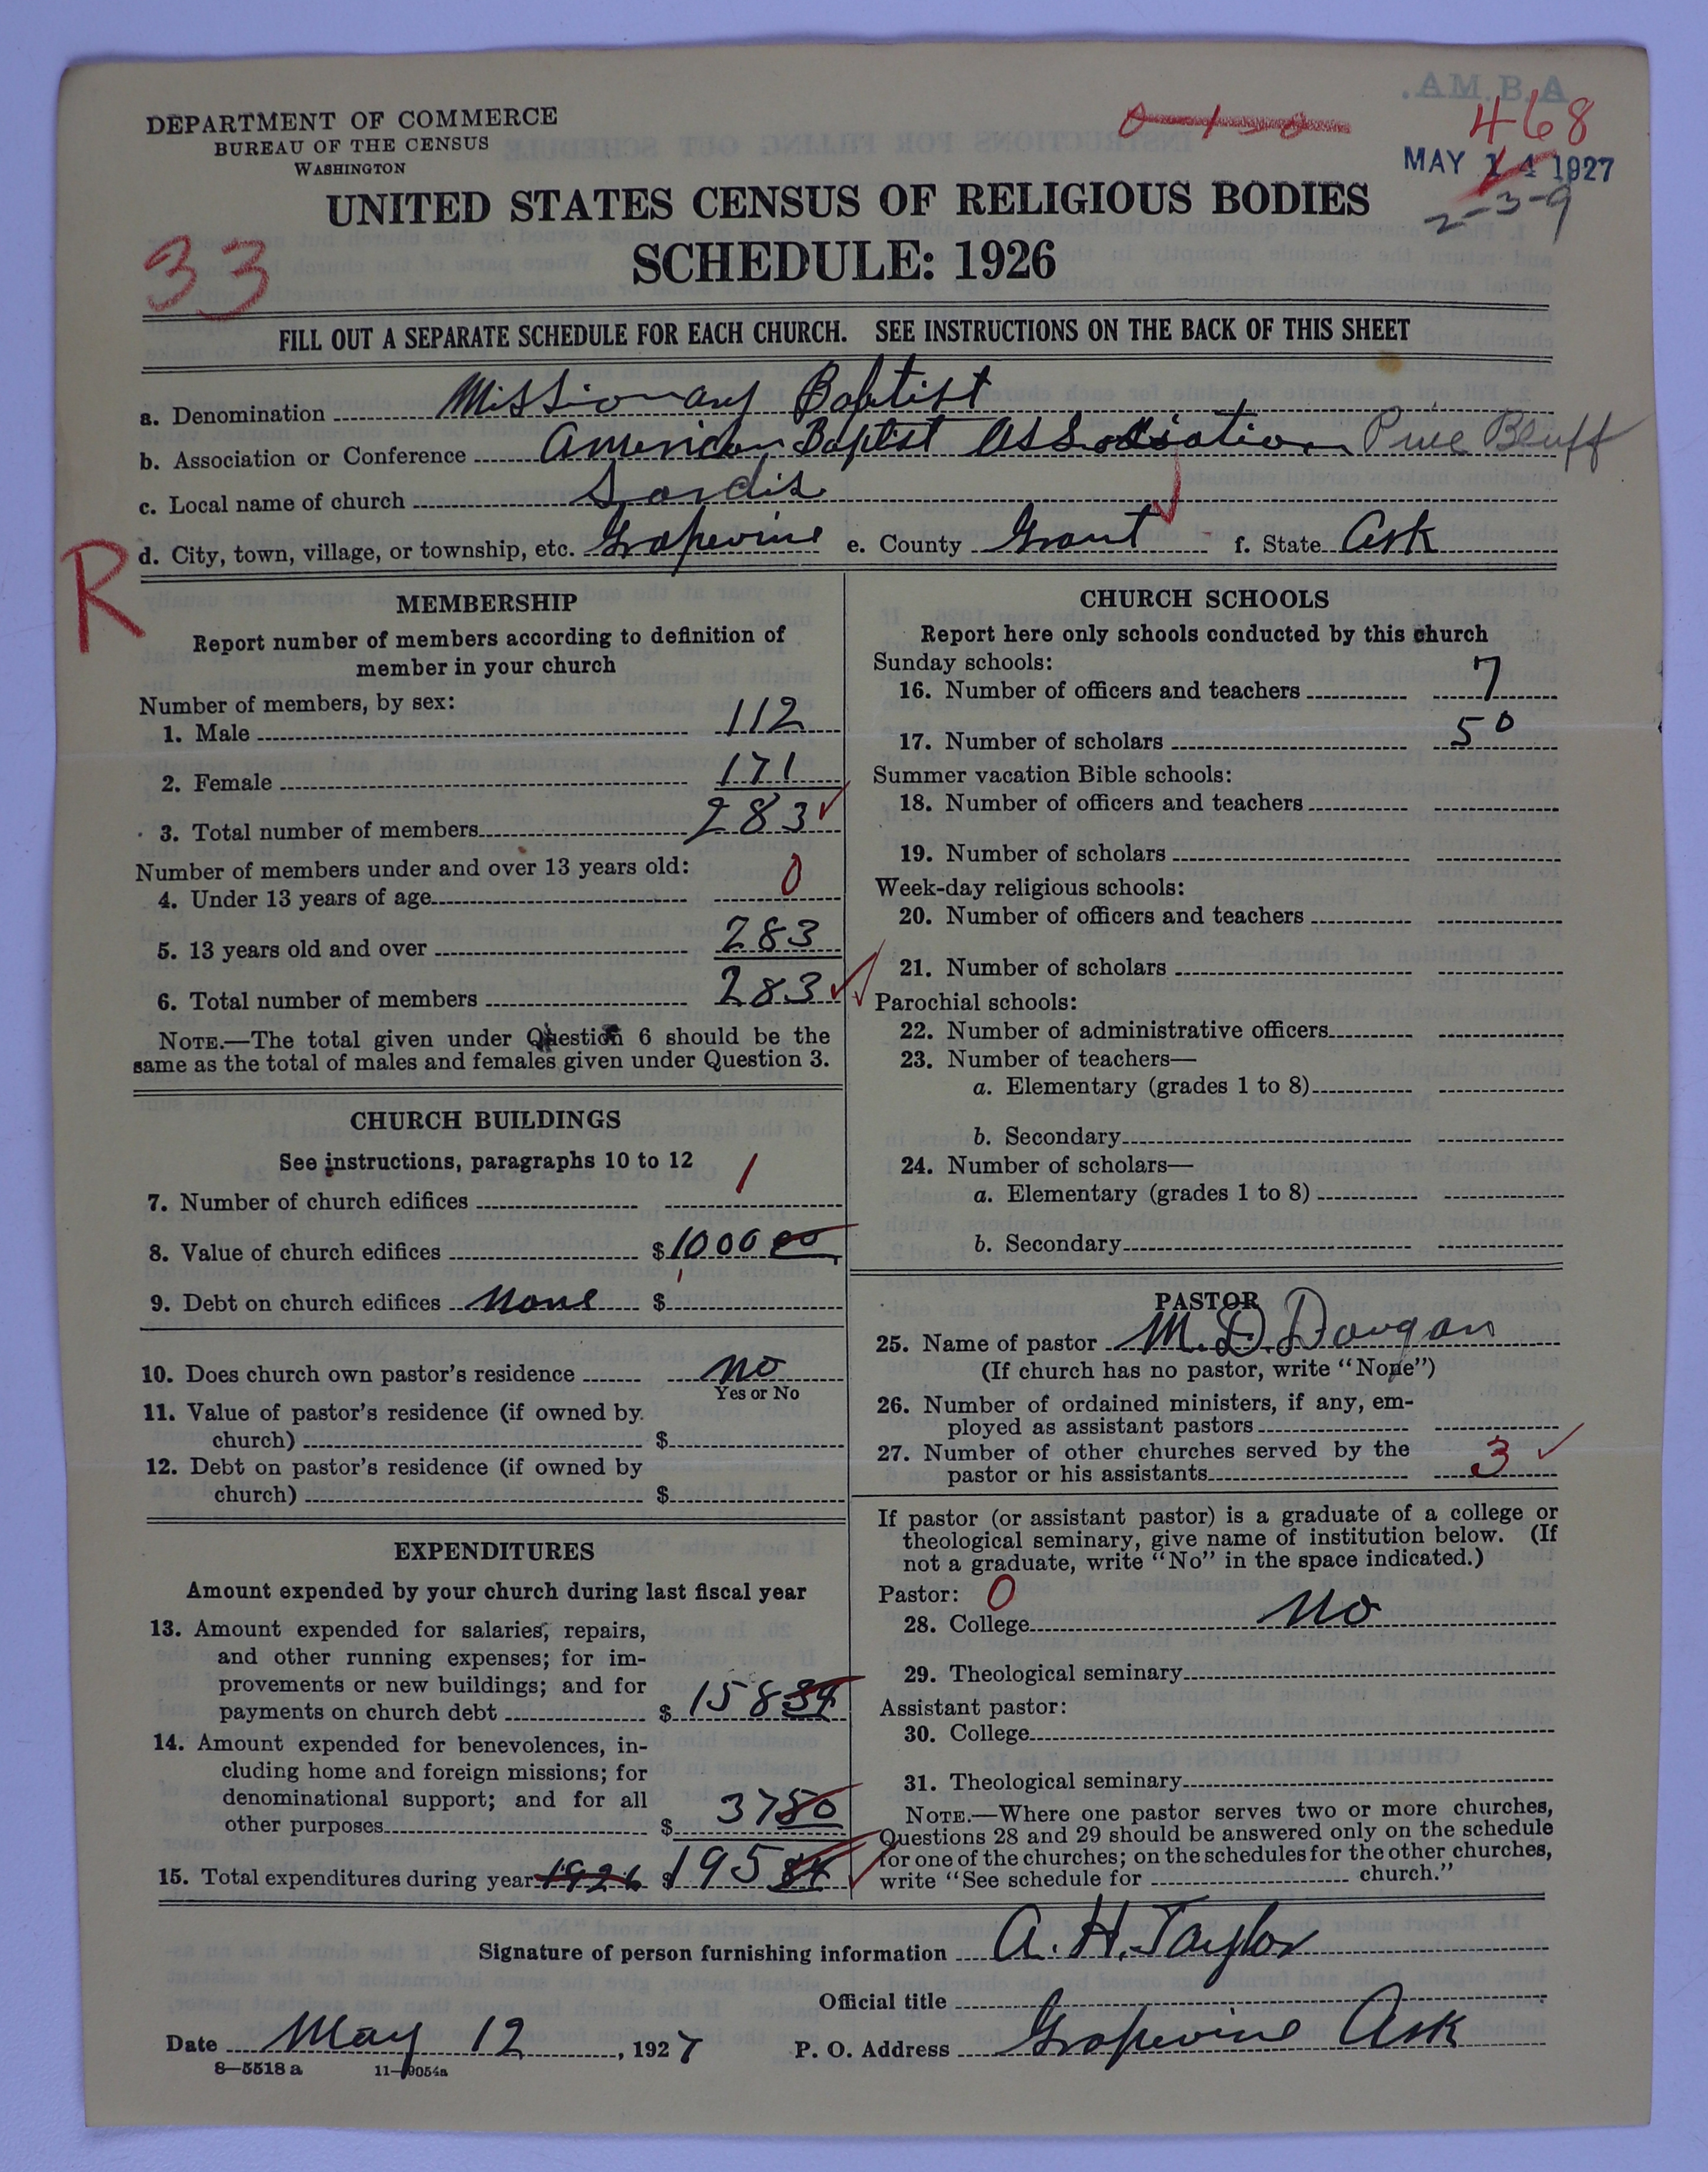 A.B.MA.
DEPARTMENT OF COMMERCE
BUREAU OF THE CENSUS
WASHINGTON
468
MAY 14 1927
2-3-9
UNITED STATES CENSUS OF RELIGIOUS BODIES
SCHEDULE: 1926
33
FILL OUT A SEPARATE SCHEDULE FOR EACH CHURCH. SEE INSTRUCTIONS ON THE BACK OF THIS SHEET
a. Denomination Missionary Baptist
b. Association or Conference American Baptist Association Pine Bluff
c. Local name of church Sardis
d. City, town, village, or township, etc. Grapevine e. County Grant f. State Ark
R
MEMBERSHIP
Report number of members according to definition of
member in your church
Number of members, by sex:
1. Male 112
2. Female 171
3. Total number of members 283
Number of members under and over 13 years old:
4. Under 13 years of age 0
5. 13 years old and over 283
6. Total number of members 283
NOTE.—The total given under Question 6 should be the
same as the total of males and females given under Question 3.
CHURCH BUILDINGS
See instructions, paragraphs 10 to 12
7. Number of church edifices 1
8. Value of church edifices $1000 00
9. Debt on church edifices None $
10. Does church own pastor's residence No
Yes or No
11. Value of pastor's residence (if owned by
church) $
12. Debt on pastor's residence (if owned by
church) $
EXPENDITURES
Amount expended by your church during last fiscal year
13. Amount expended for salaries, repairs,
and other running expenses; for im-
provements or new buildings; and for
payments on church debt $ 158 34
14. Amount expended for benevolences, in-
cluding home and foreign missions; for
denominational support; and for all
other purposes $ 37 50
15. Total expenditures during year 1926 $ 195 84
CHURCH SCHOOLS
Report here only schools conducted by this church
Sunday schools:
16. Number of officers and teachers 7
17. Number of scholars 50
Summer vacation Bible schools:
18. Number of officers and teachers
19. Number of scholars
Week-day religious schools:
20. Number of officers and teachers
21. Number of scholars
Parochial schools:
22. Number of administrative officers
23. Number of teachers—
a. Elementary (grades 1 to 8)
b. Secondary
24. Number of scholars—
a. Elementary (grades 1 to 8)
b. Secondary
PASTOR
25. Name of pastor M. D. Dougan
(If church has no pastor, write "None")
26. Number of ordained ministers, if any, em-
ployed as assistant pastors
27. Number of other churches served by the
pastor or his assistants 3
If pastor (or assistant pastor) is a graduate of a college or
theological seminary, give name of institution below. (If
not a graduate, write "No" in the space indicated.)
Pastor: 0
28. College No
29. Theological seminary
Assistant pastor:
30. College
31. Theological seminary
NOTE.—Where one pastor serves two or more churches,
Questions 28 and 29 should be answered only on the schedule
for one of the churches; on the schedules for the other churches,
write "See schedule for church."
Signature of person furnishing information A. H. Taylor
Official title
Date May 12, 1927 P. O. Address Grapevine Ark
8—5518 a 11—9054a